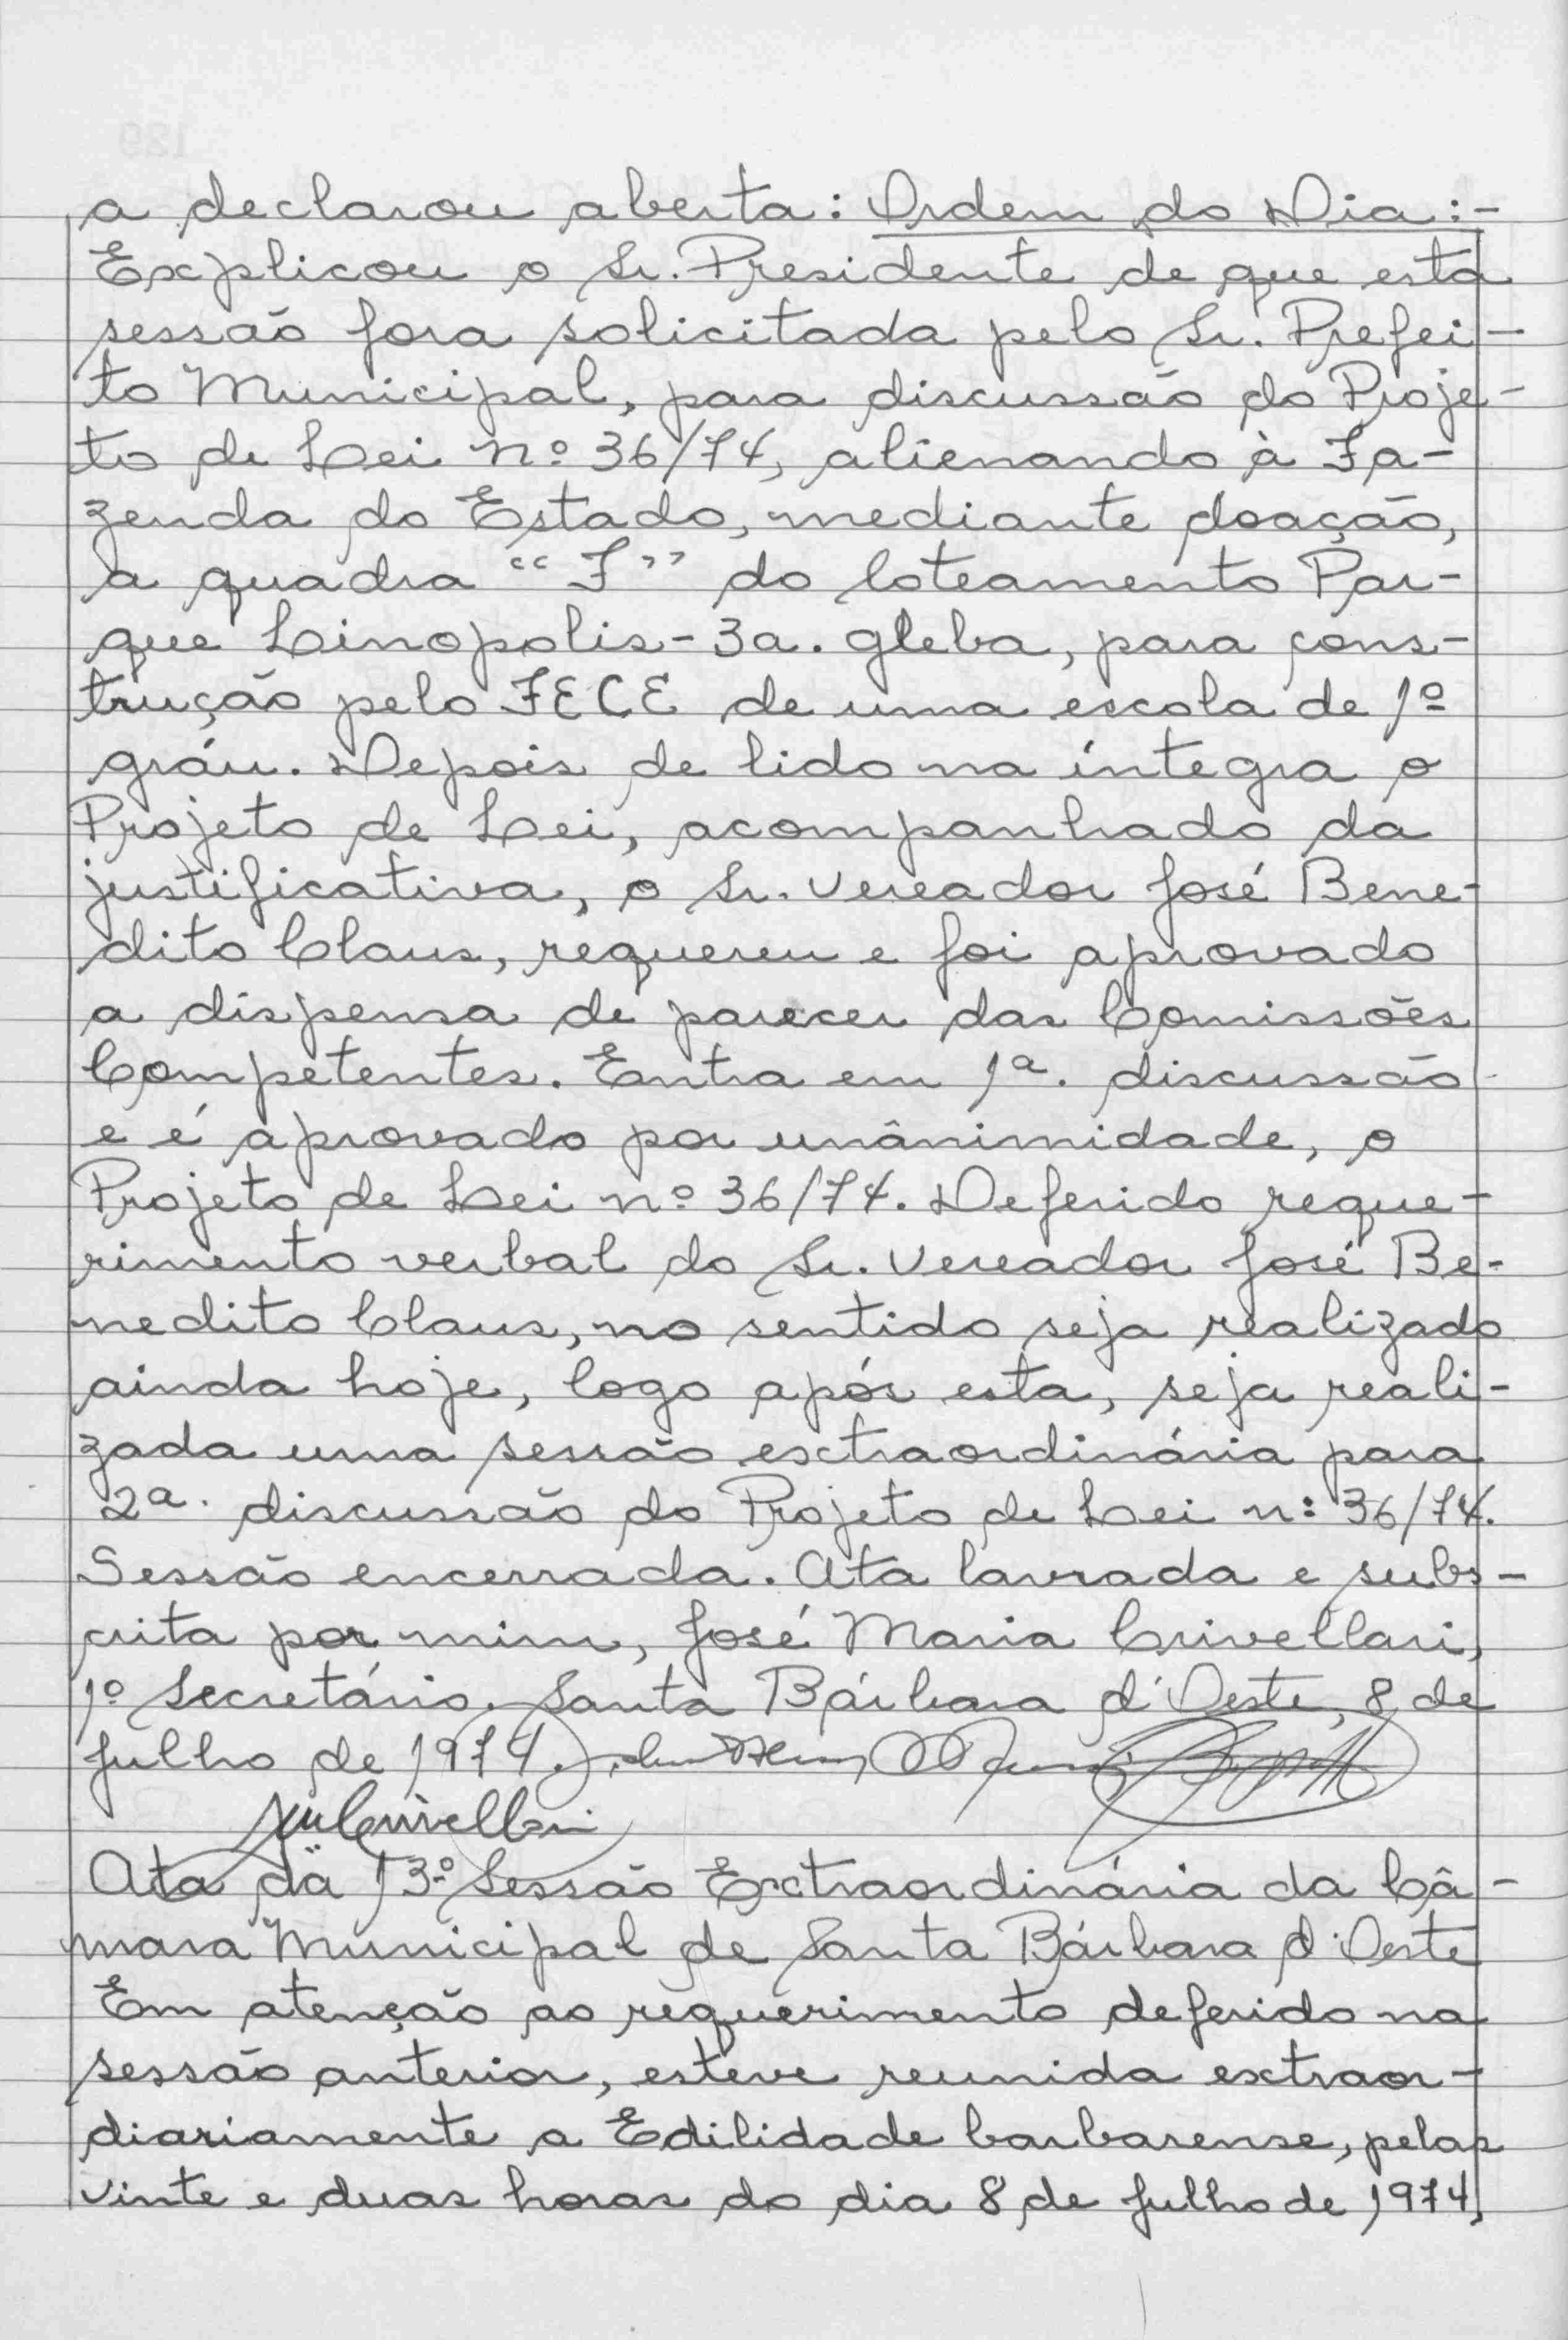 a declarou aberta: Ordem do Dia:-
Explicou o Sr. Presidente de que esta
sessão fora solicitada pelo Sr. Prefei-
to Municipal, para discussão do Proje-
to de Lei nº 36/74, alienando à Fa-
zenda do Estado, mediante doação,
a quadra "F" do loteamento Par-
que Linopolis - 3a. gleba, para cons-
trução pelo FECE de uma escola de 1º
gráu. Depois de lido na íntegra o
Projeto de Lei, acompanhado da
justificativa, o Sr. Vereador José Bene-
dito Claus, requereu e foi aprovado
a dispensa de parecer das Comissões
Competentes. Entra em 1ª. discussão
e é aprovado por unânimidade, o
Projeto de Lei nº 36/74. Deferido reque-
rimento verbal do Sr. Vereador José Be-
nedito Claus, no sentido seja realizado
ainda hoje, logo após esta, seja reali-
zada uma sessão extraordinária para
2ª. discussão do Projeto de Lei nº 36/74.
Sessão encerrada. Ata lavrada e subs-
crita por mim, José Maria Crivellari,
1º Secretário. Santa Bárbara d'Oeste, 8 de
Julho de 1974.
Crivellari
Ata da 13ª Sessão Extraordinária da Câ-
mara Municipal de Santa Bárbara d'Oeste
Em atenção ao requerimento deferido na
sessão anterior, esteve reunida extraor-
diariamente a Edilidade barbarense, pelas
vinte e duas horas do dia 8 de Julho de 1974,